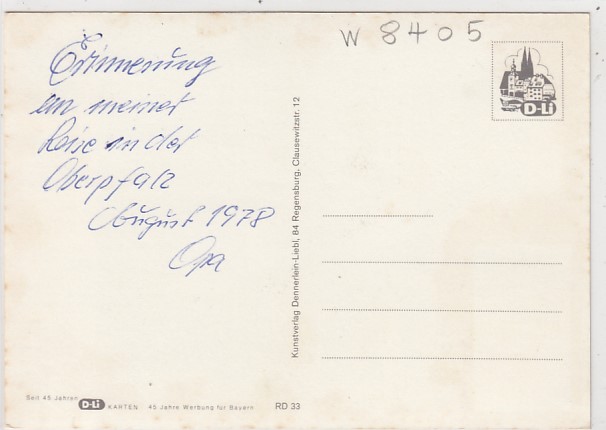 W 8405
Erinnerung
an meiner
Reise in der
Oberpfalz
August 1978
Opa
D-Li
Kunstverlag Dennerlein-Liebl, 84 Regensburg, Clausewitzstr. 12
Seit 45 Jahren D-Li KARTEN 45 Jahre Werbung für Bayern
RD 33